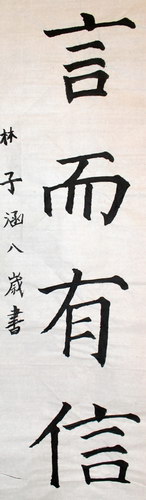 言而有信
林子涵八歲書